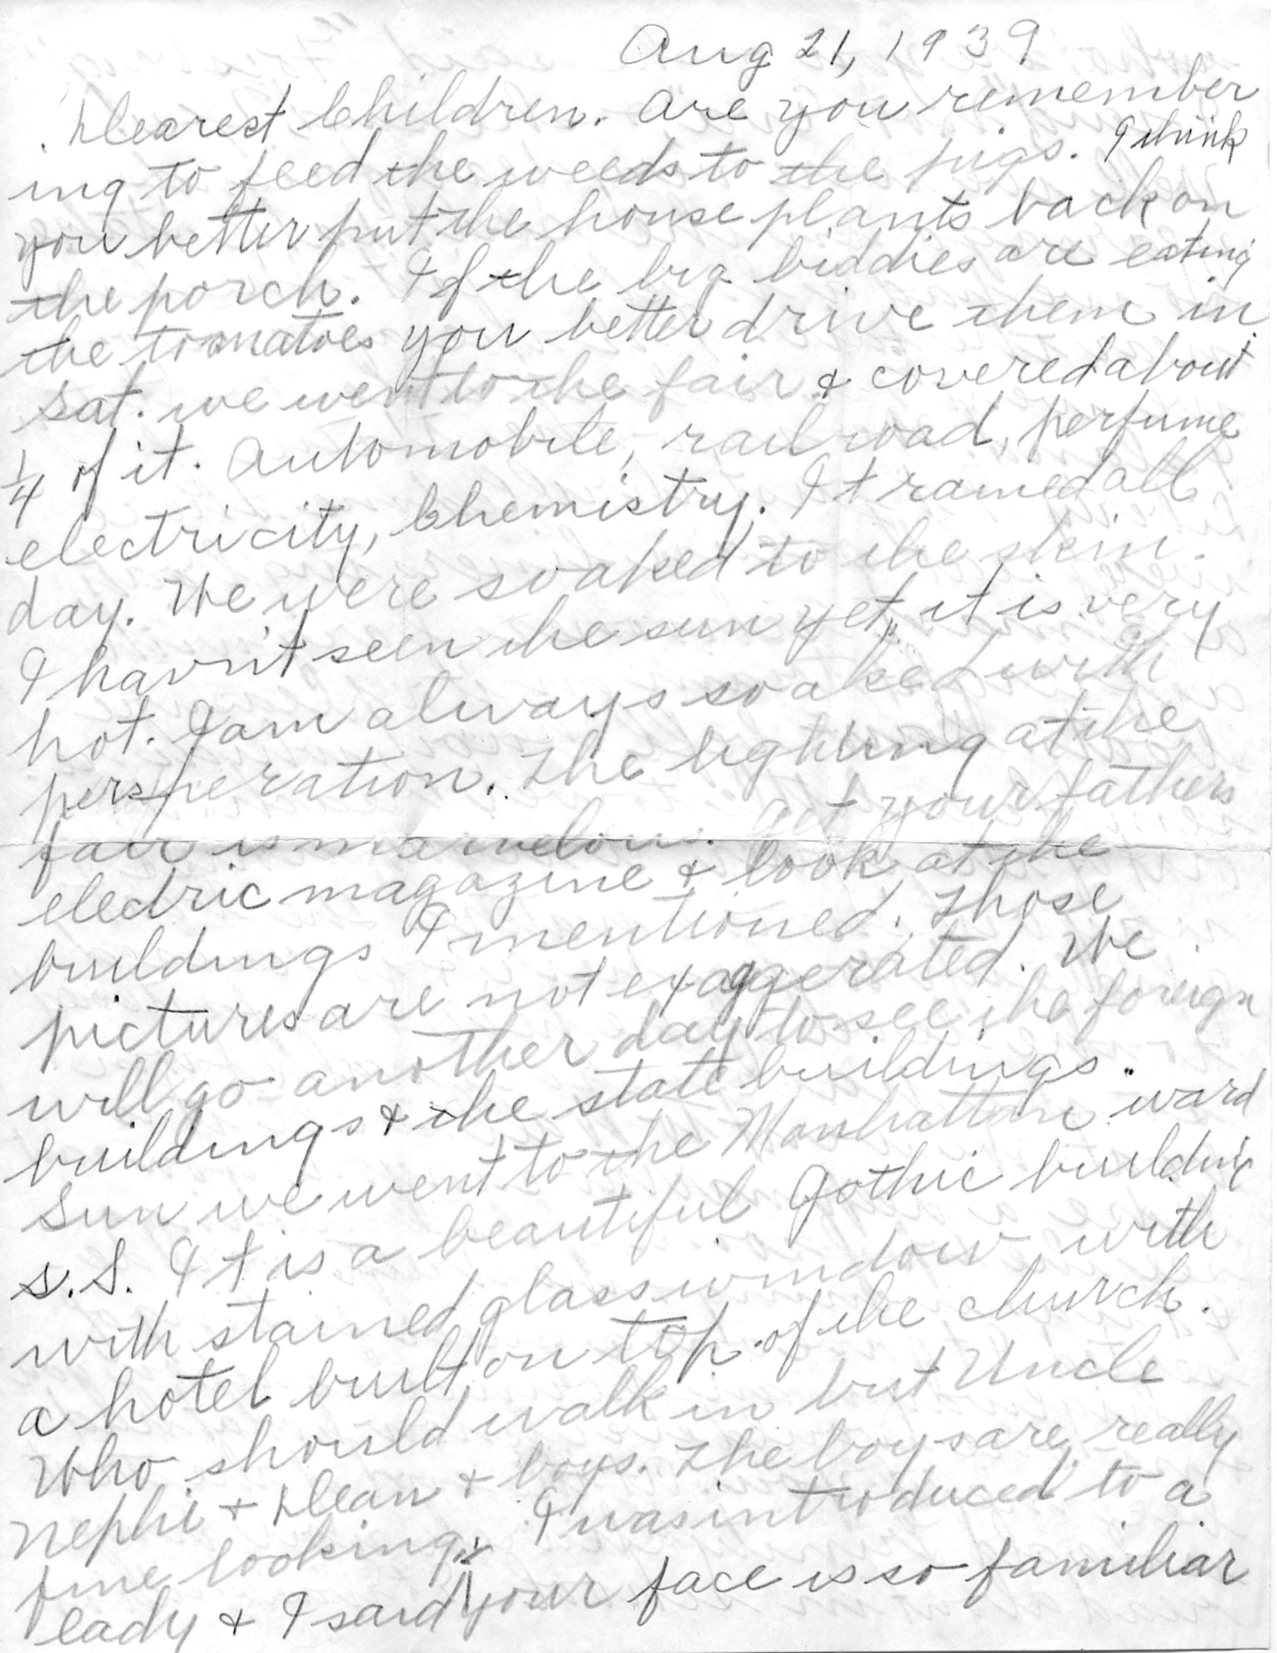 Aug 21, 1939
Dearest Children. Are you remember
ing to feed the weeds to the pigs. I think
you better put the house plants back on
the porch. If the big biddies are eating
the tomatoes you better drive them in.
Sat. we went to the fair & covered about
1/4 of it. Automobile, railroad, perfume
electricity, Chemistry. It rained all
day. We were soaked to the skin.
I havn't seen the sun yet, it is very
hot. I am always soaked with
persperation. The lighting at the
fair is marvelous. Get your fathers
electric magazine & look at the
buildings I mentioned. Those
pictures are not exaggerated. We
will go another day to see the foreign
buildings & the state buildings.
Sun we went to the Manhattan ward
S.S. It is a beautiful Gothic building
with stained glass window with
a hotel built on top of the church.
Who should walk in but Uncle
Nephi & Dean & boys. The boys are really
fine looking. I was introduced to a
lady & I said "your face is so familiar